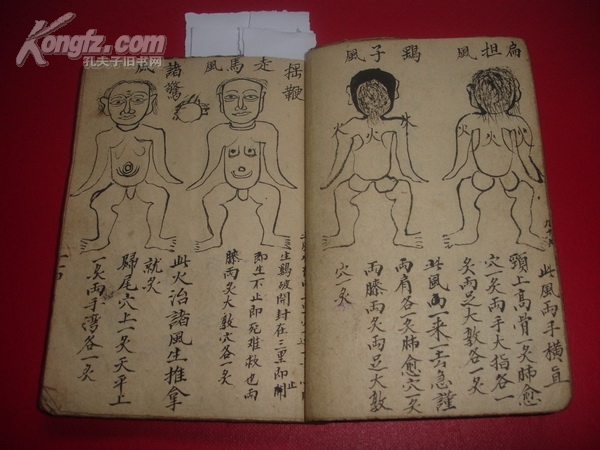 Kongfz.com
孔夫子旧书网
扁担風
鷂子風
此風両手橫直
頸上高骨一灸肺愈
穴一灸両手大指各一
灸両足大敦各一灸
此風両一來一去急謹
両肩各一灸肺愈穴一灸
両膝両灸両足大敦
穴一灸
搖鞭
走馬風
諸驚
風
生鷄破開封在三里即
即生不止即死难救也両
膝両灸大敦穴各一灸
此火治諸風生推拿
就灸
歸尾穴上一灸天平上
一灸両手灣各一灸
火
火
火
火
火